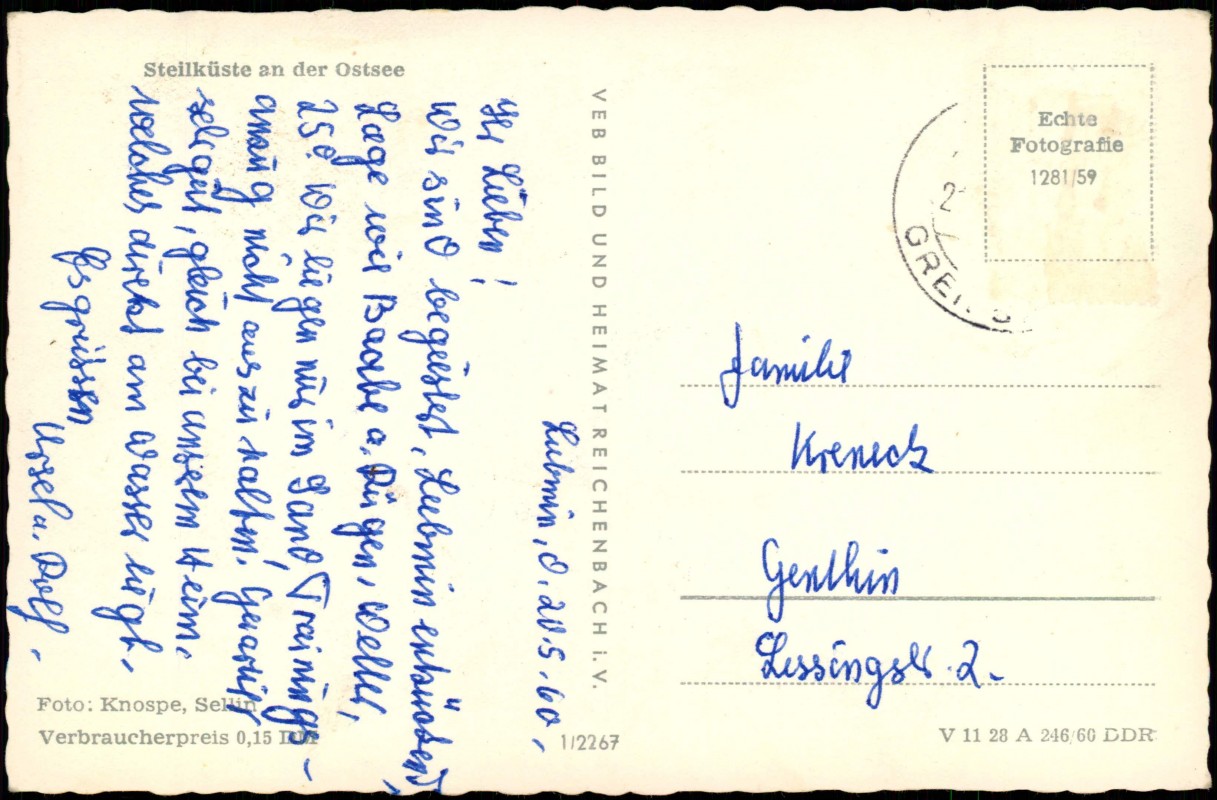 Steilküste an der Ostsee
Lubmin, d. 20.5.60.
Ihr Lieben!
Wir sind begeistert, Lubmin entzückend,
Lage wie Baabe a. Rügen, Wetter,
25°. Wir liegen nur im Sand, Trainings-
anzug nicht auszuhalten!
gleich bei unserm Heim,
welches direkt am Wasser liegt.
Es grüssen
Ursel u. Rolf.
Foto: Knospe, Sellin
Verbraucherpreis 0,15 DM
VEB BILD UND HEIMAT REICHENBACH i. V.
1/2267
Echte
Fotografie
1281/59
Familie
Kreneck
Genthin
Lessingstr. 2.
V 11 28 A 246/60 DDR